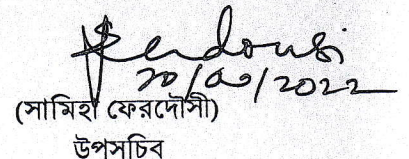 Ferdousi
20/03/2022
(সামিহা ফেরদৌসী)
উপসচিব